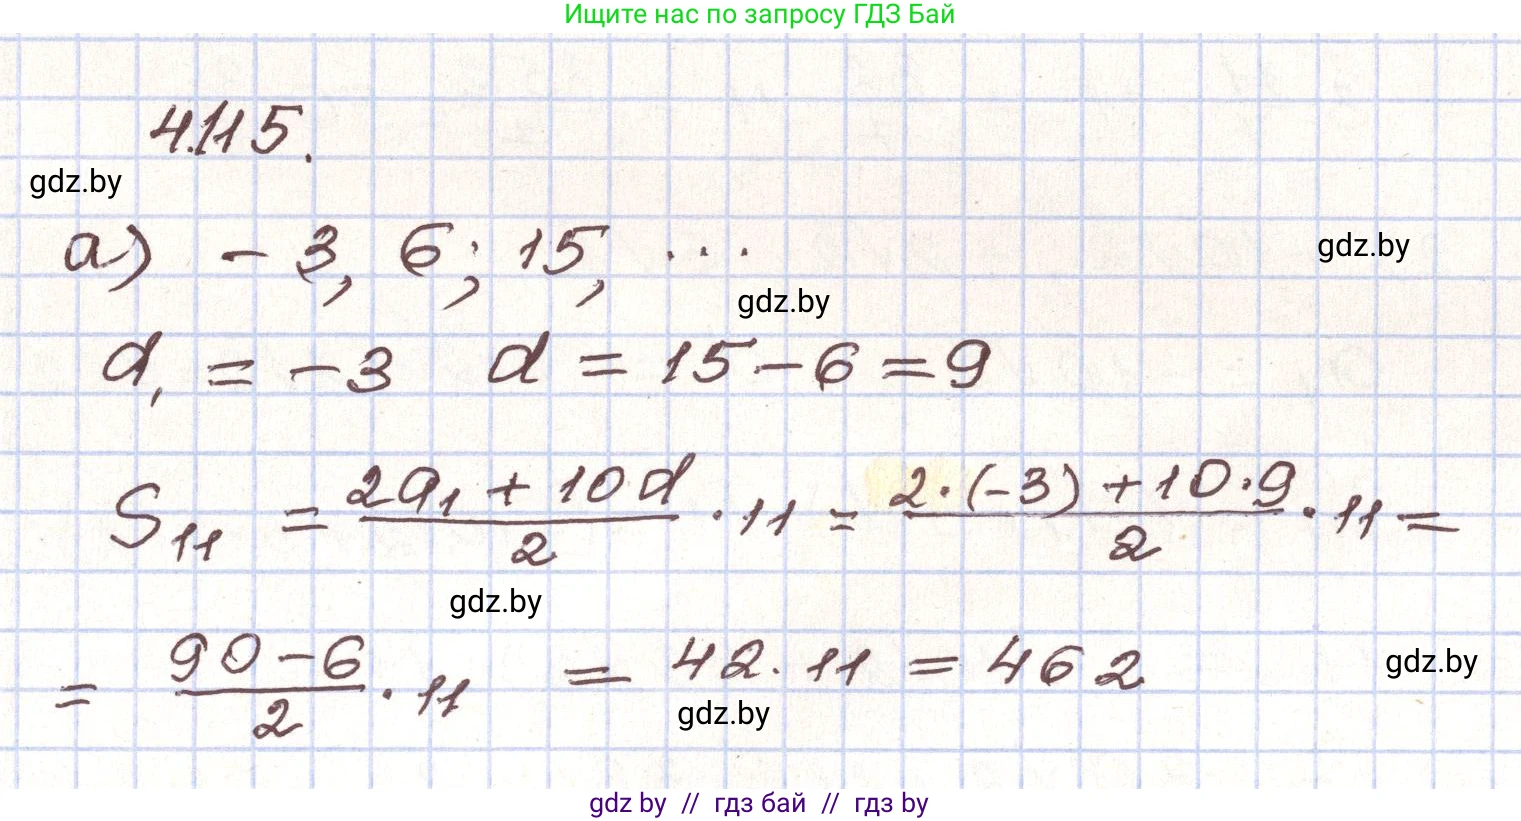 Ищите нас по запросу ГДЗ Бай
4.115.
gdz.by
а) - 3, 6; 15, ...
gdz.by
gdz.by
a₁ = -3 d = 15 - 6 = 9
S₁₁ = (2a₁ + 10d)/2 · 11 = (2·(-3) + 10·9)/2 · 11 =
gdz.by
= (90 - 6)/2 · 11 = 42 · 11 = 462
gdz.by
gdz.by
gdz by // гдз бай // гдз by